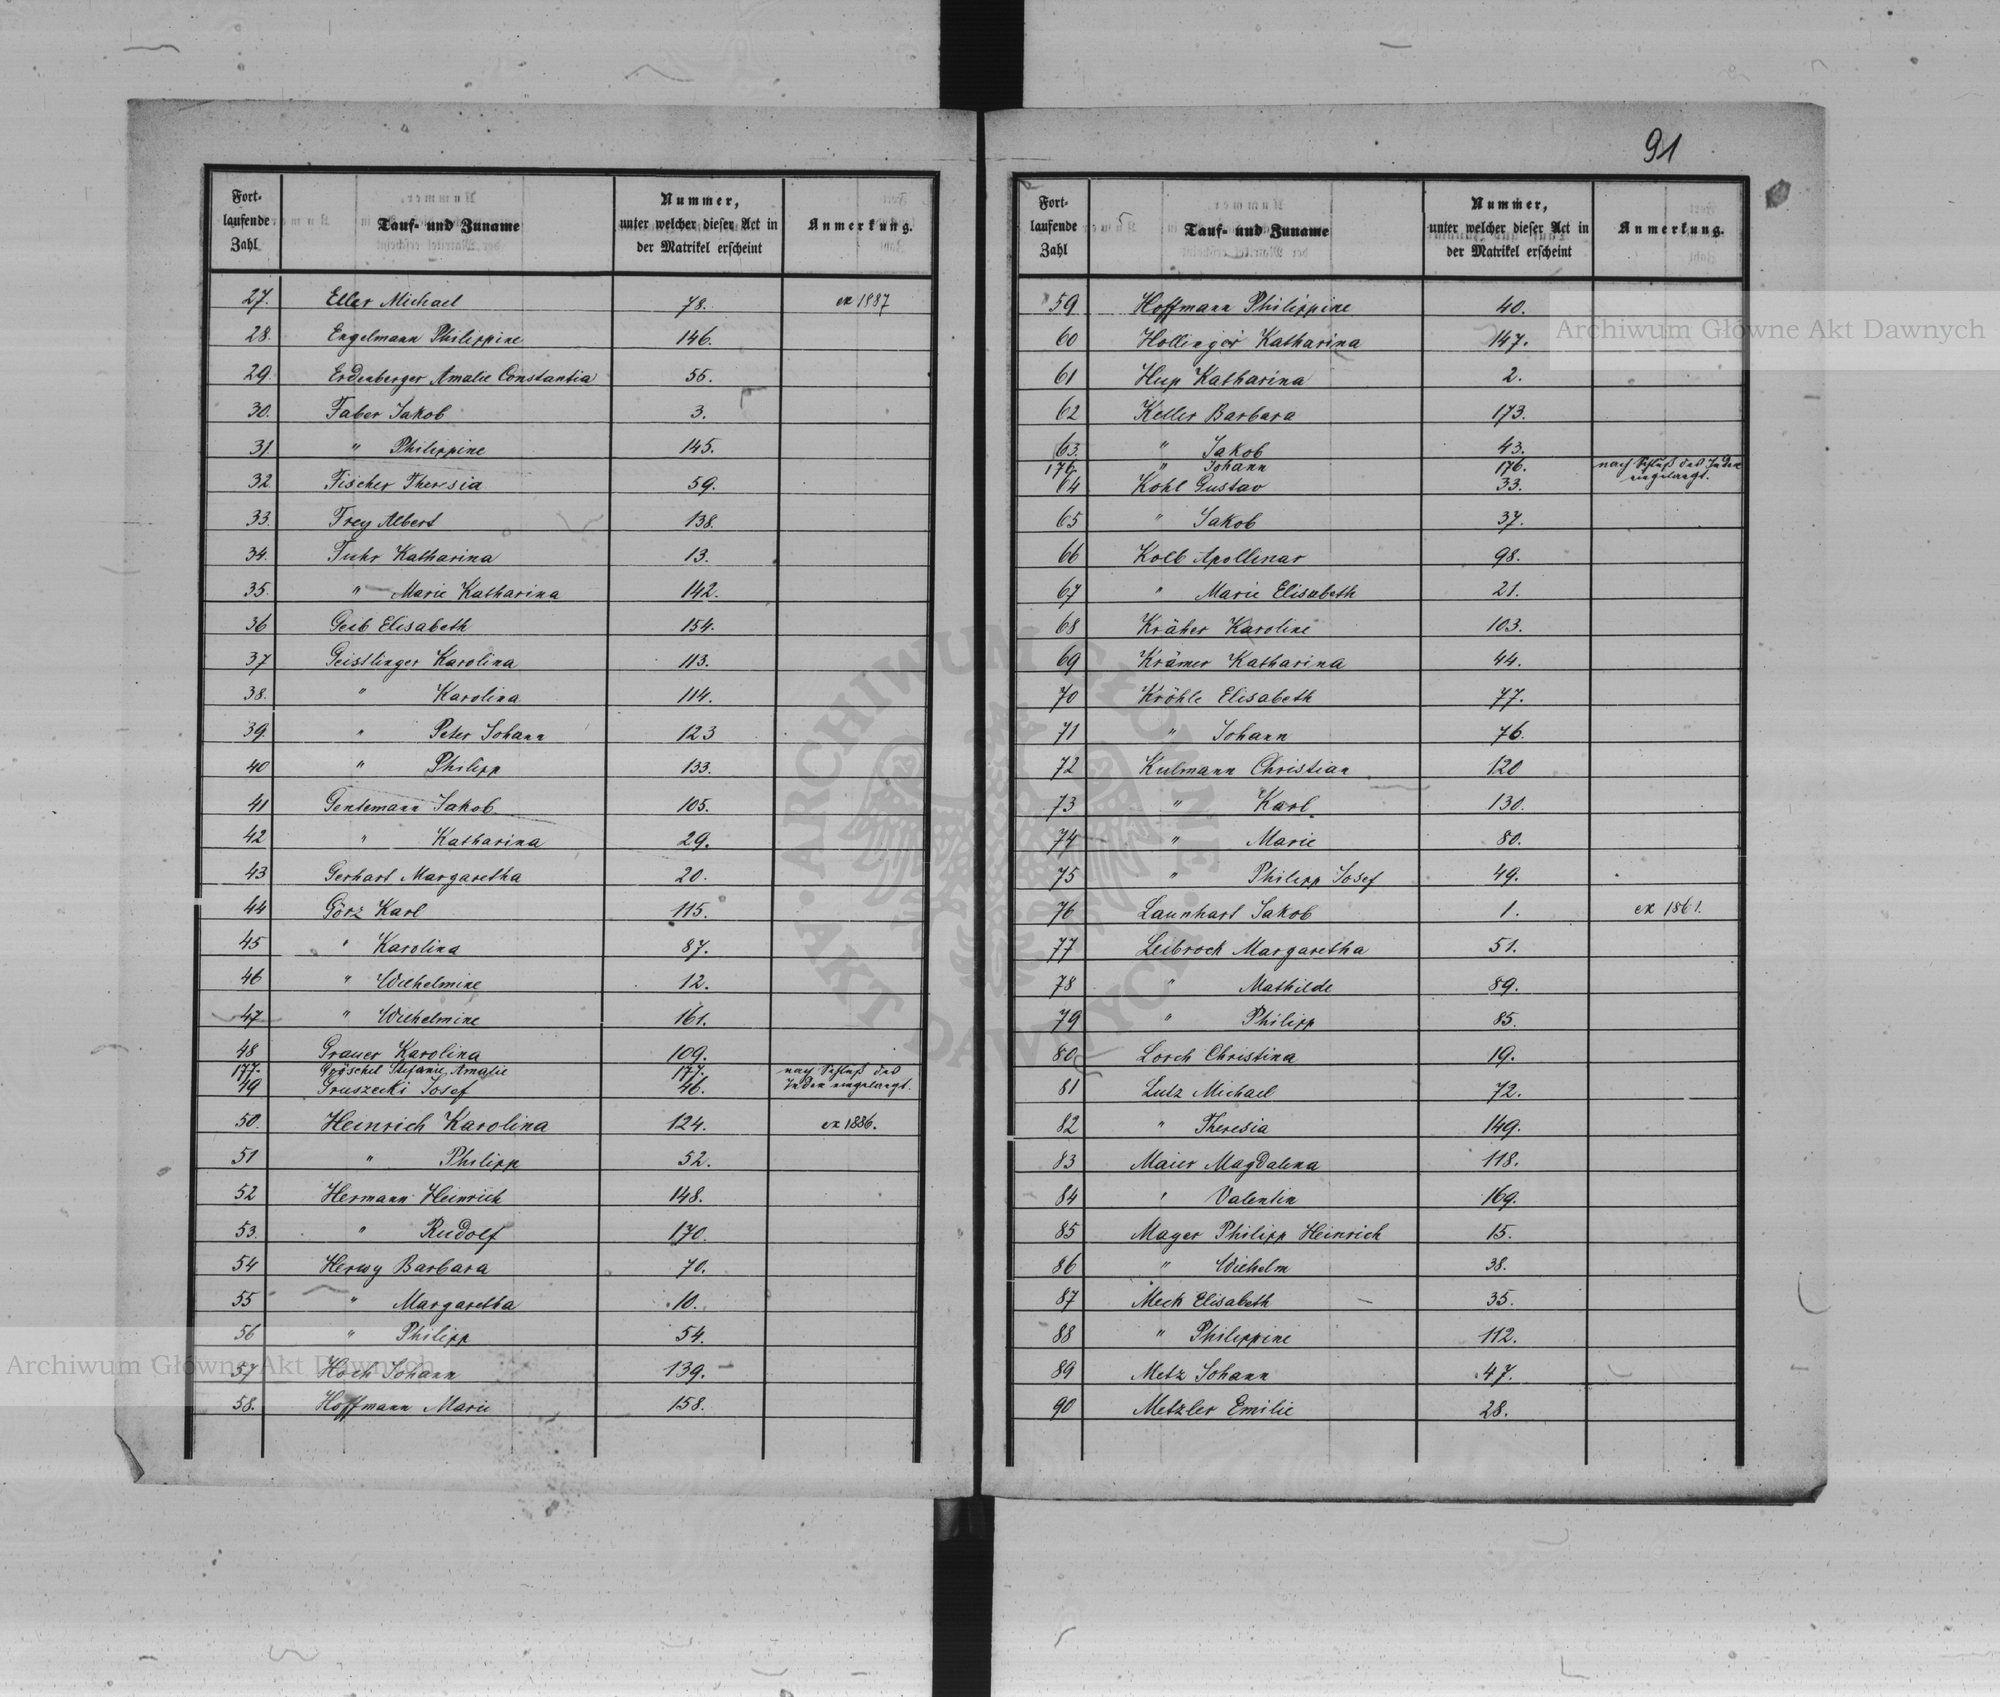 91
Fort-
laufende
Zahl
Tauf- und Zuname
Nummer,
unter welcher dieser Act in
der Matrikel erscheint
Anmerkung.
27. Eller Michael 78. ex 1887
28. Engelmann Philippine 146.
29. Erdenberger Amalie Constantia 55.
30. Faber Jakob 3.
31. " Philippine 145.
32. Fischer Theresia 59.
33. Frey Albert 138.
34. Fuhr Katharina 13.
35. " Marie Katharina 142.
36 Geib Elisabeth 154.
37 Geistlinger Karolina 113.
38. " Karolina 114.
39 " Peter Johann 123
40 " Philipp 133.
41 Gentemann Jakob 105.
42 " Katharina 29.
43 Gerhart Margaretha 20.
44 Görz Karl 115.
45 " Karolina 87.
46 " Wilhelmine 12.
47 " Wilhelmine 161.
48 Grauer Karolina 109.
177. Gröschel Stefanie Amalie 177. nach Schluß des
49 Gruszecki Josef 46. Index eingelangt.
50. Heinrich Karolina 124. ex 1886.
51 " Philipp 52.
52 Hermann Heinrich 148.
53. " Rudolf 170.
54 Herwy Barbara 70.
55 " Margaretha 10.
56 " Philipp 54.
57 Hoch Johann 139.
58. Hoffmann Marie 158.
Fort-
laufende
Zahl
Tauf- und Zuname
Nummer,
unter welcher dieser Act in
der Matrikel erscheint
Anmerkung.
59 Hoffmann Philippine 40.
60 Hollinger Katharina 147.
61 Hup Katharina 2.
62 Keller Barbara 173.
63. " Jakob 43.
176. " Johann 176. nach Schluß des Index
64 Kohl Gustav 33. eingelangt.
65 " Jakob 37.
66 Kolb Apollinar 98.
67 " Marie Elisabeth 21.
68 Kräher Karoline 103.
69 Krämer Katharina 44.
70 Kröhle Elisabeth 77.
71 " Johann 76.
72 Kulmann Christian 120
73 " Karl 130.
74 " Marie 80.
75 " Philipp Josef 49.
76 Launhart Jakob 1. ex 1861.
77 Leibrock Margaretha 51.
78 " Mathilde 89.
79 " Philipp 85.
80 Lorch Christina 19.
81 Lutz Michael 72.
82 " Theresia 149.
83 Maier Magdalena 118.
84 " Valentin 169.
85 Mayer Philipp Heinrich 15.
86 " Wilhelm 38.
87 Meck Elisabeth 35.
88 " Philippine 112.
89 Metz Johann 47.
90 Metzler Emilie 28.
Archiwum Główne Akt Dawnych
Archiwum Główne Akt Dawnych
ARCHIWUM GŁÓWNE AKT DAWNYCH